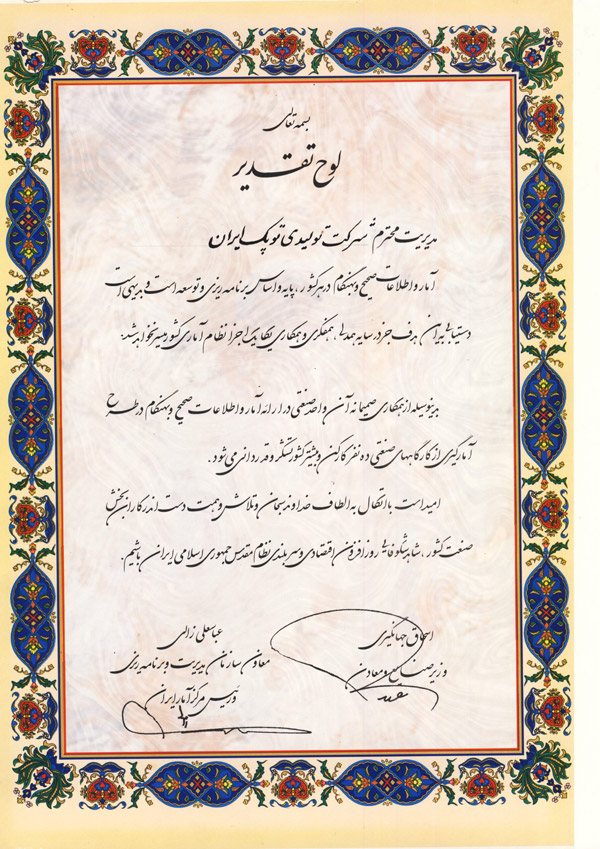 بسمه تعالی
لوح تقدیر
مدیریت محترم شرکت تولیدی توپک ایران
آمار و اطلاعات صحیح و بهنگام در هر کشور، پایه و اساس برنامه ریزی و توسعه است و بدیهی است
دستیابی به آن هدف جز در سایه همدلی، همفکری و همکاری یکایک اجزا نظام آماری کشور میسر نخواهد شد.
بدینوسیله از همکاری صمیمانه آن واحد صنعتی در ارائه آمار و اطلاعات صحیح و بهنگام در طرح
آمارگیری از کارگاههای صنعتی ده نفر کارکن و بیشتر کشور تشکر و قدردانی می شود.
امید است با اتکال به الطاف خداوند سبحان و تلاش و همت دست اندرکاران بخش
صنعت کشور، شاهد شکوفایی روزافزون اقتصادی و سربلندی نظام مقدس جمهوری اسلامی ایران باشیم.
اسحاق جهانگیری
وزیر صنایع و معادن
عباسعلی زالی
معاون سازمان مدیریت و برنامه ریزی
و رئیس مرکز آمار ایران